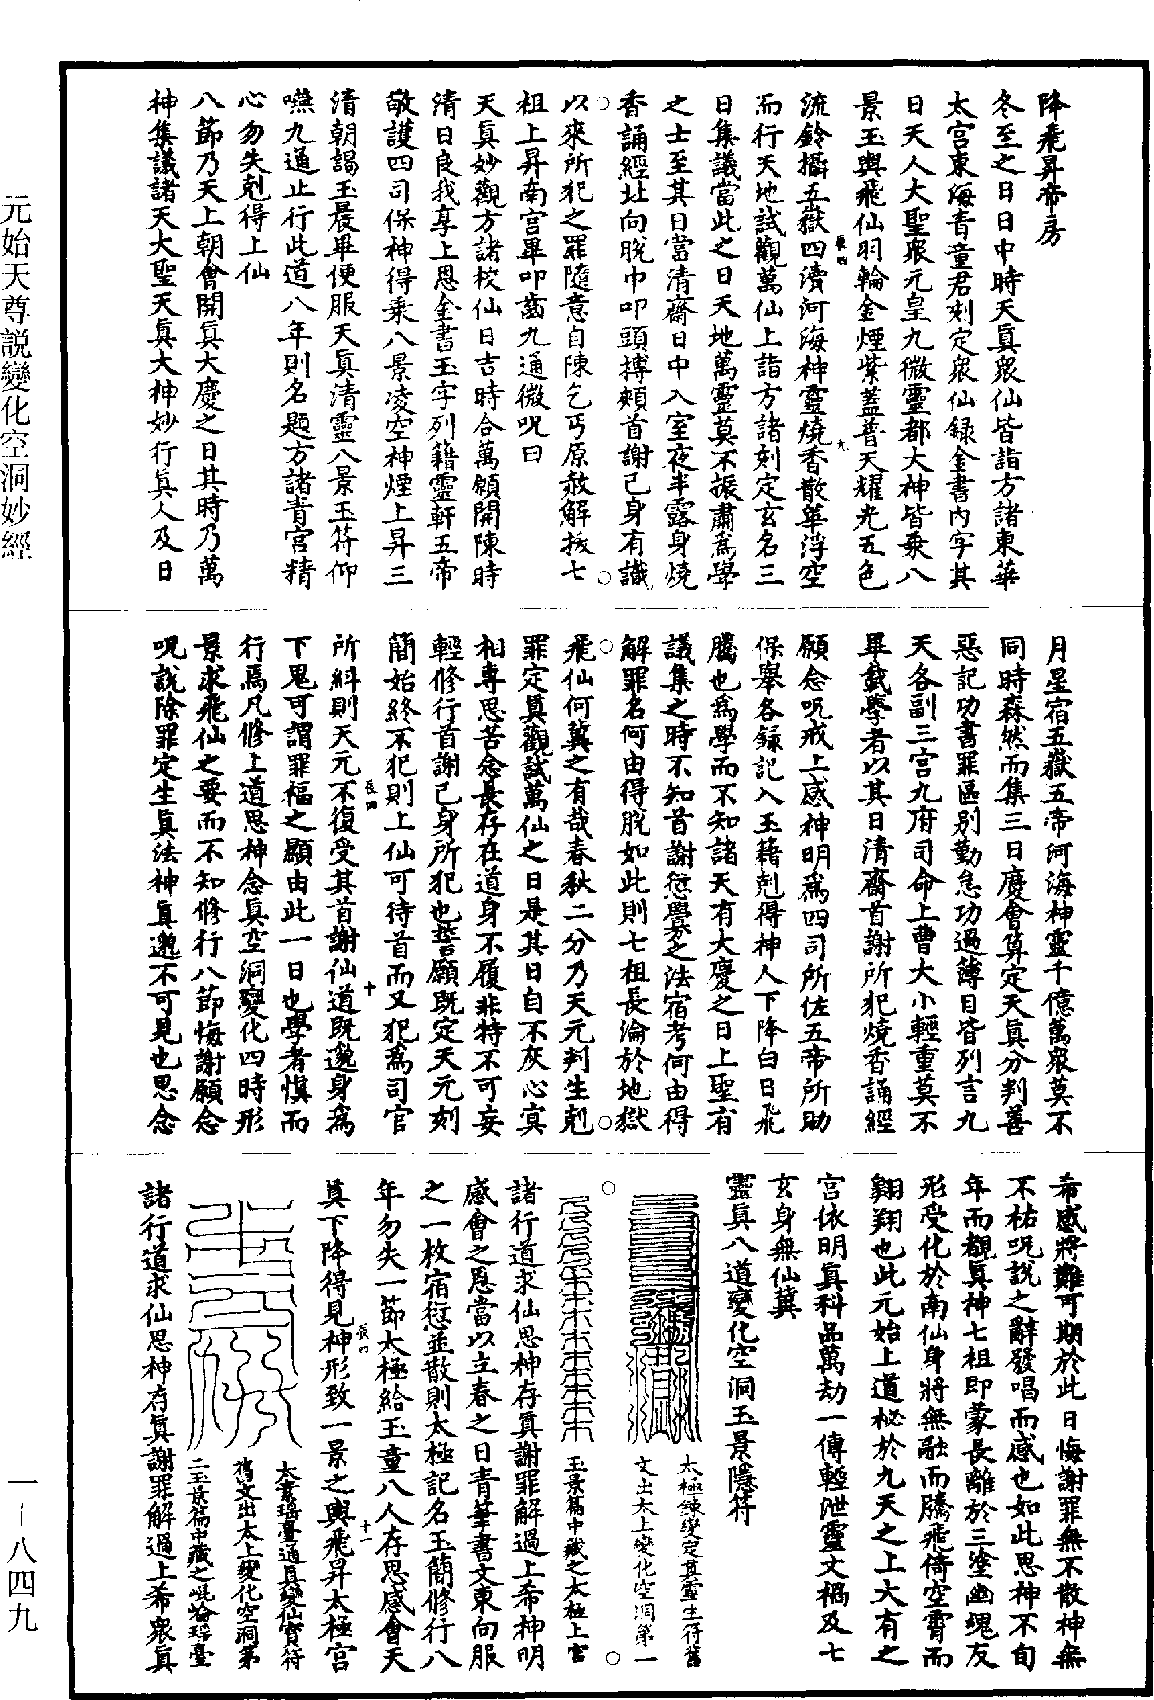 降飛昇帝房
冬至之日日中時天真衆仙皆詣方諸東華
太宮東海青童君刻定衆仙録金書内字其
日天人大聖衆元皇九微靈都大神皆乘八
景玉輿飛仙羽輪金煙紫蓋普天耀光五色
流鈴攝五嶽四瀆河海神靈燒香散華浮空
而行天地試觀萬仙上詣方諸刻定玄名三
日集議當此之日天地萬靈莫不振肅爲學
之士至其日當清齋日中入室夜半露身燒
香誦經北向脫巾叩頭搏頰首謝己身有識
以來所犯之罪隨意自陳乞丐原赦解拔七
祖上昇南宮畢叩齒九通微呪曰
天真妙觀方諸校仙日吉時合萬願開陳時
清日良我享上恩金書玉字列籍靈軒五帝
敬護四司保神得乘八景凌空神煙上昇三
清朝謁玉晨畢便服天真清靈八景玉符仰
嚥九通止行此道八年則名題方諸青宮精
心勿失剋得上仙
八節乃天上朝會開真大慶之日其時乃萬
神集議諸天大聖天真大神妙行真人及日
月星宿五嶽五帝河海神靈千億萬衆莫不
同時森然而集三日慶會算定天真分判善
惡記功書罪區别勤怠功過簿目皆列言九
天各副三宮九府司命上曹大小輕重莫不
畢載學者以其日清齋首謝所犯燒香誦經
願念呪戒上感神明爲四司所佐五帝所助
保舉各錄記入玉籍剋得神人下降白日飛
騰也爲學而不知諸天有大慶之日上聖有
議集之時不知首謝愆釁之法宿考何由得
解罪名何由得脫如此則七祖長淪於地獄
飛仙何冀之有哉春秋二分乃天元判生剋
罪定真觀試萬仙之日是其日自不灰心寘
相專思苦念長存在道身不履非特不可妄
輕修行首謝己身所犯也誓願既定天元刻
簡始終不犯則上仙可待首而又犯爲司官
所糾則天元不復受其首謝仙道既邈身爲
下鬼可謂罪福之願由此一日也學者慎而
行焉凡修上道思神念真空洞變化四時形
景求飛仙之要而不知修行八節悔謝願念
呪說除罪定生真法神真邈不可見也思念
希感將難可期於此日悔謝罪無不散神無
不祐呪說之辭發唱而感也如此思神不旬
年而覩真神七祖即蒙長離於三塗幽魂友
形受化於南仙身將無融而騰飛倚空霄而
翱翔也此元始上道祕於九天之上大有之
宮依明真科品萬劫一傳輕泄靈文禍及七
玄身無仙冀
靈真八道變化空洞玉景隱符
太極鍊變定真靈生符舊
文出太上變化空洞第一
玉景篇中藏之太極上宮
諸行道求仙思神存真謝罪解過上希神明
感會之恩當以立春之日青華書文東向服
之一枚宿愆並散則太極記名玉簡修行八
年勿失一節太極給玉童八人存思感會天
真下降得見神形致一景之輿飛昇太極宮
太素瑤臺通真變仙寶符
舊文出太上變化空洞第
二玉景篇中藏之崐崙瑤臺
諸行道求仙思神存真謝罪解過上希衆真
元始天尊説變化空洞妙經
一—八四九